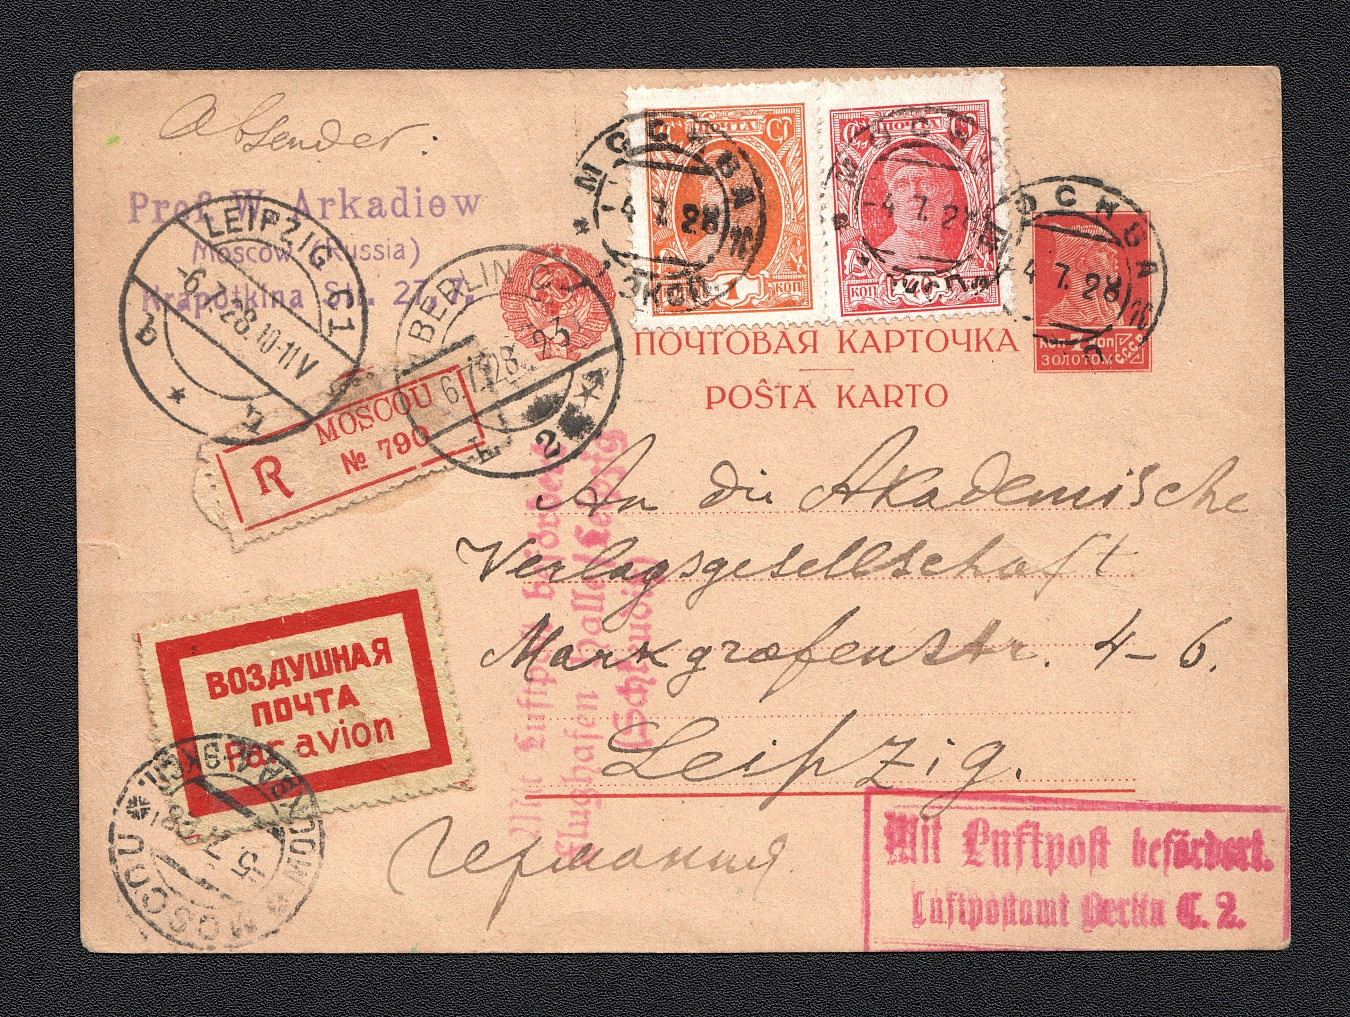 Absender:
Prof. W. Arkadiew
Moscow (Russia)
Krapotkina Str. 27, 7.
LEIPZIG C1
-6.7.28.10-11V
BERLIN C
6.7.28
2
МОСКВА
-4.7.28
МОСКВА
-4.7.28
МОСКВА
-4.7.28
ПОЧТА
КОП
ПОЧТА
КОП
КОП
ЗОЛОТОМ
СССР
ПОЧТОВАЯ КАРТОЧКА
POŜTA KARTO
R
MOSCOU
№ 790
An die Akademische
Verlagsgesellschaft
Markgrafenstr. 4-6.
Leipzig.
Германия
Mit Luftpost befördert
Flughafen Halle/Leipzig
(Schkeuditz)
ВОЗДУШНАЯ
ПОЧТА
Par avion
МОСКВА
MOSCOU
-5.7.28
Mit Luftpost befördert.
Luftpostamt Berlin C. 2.